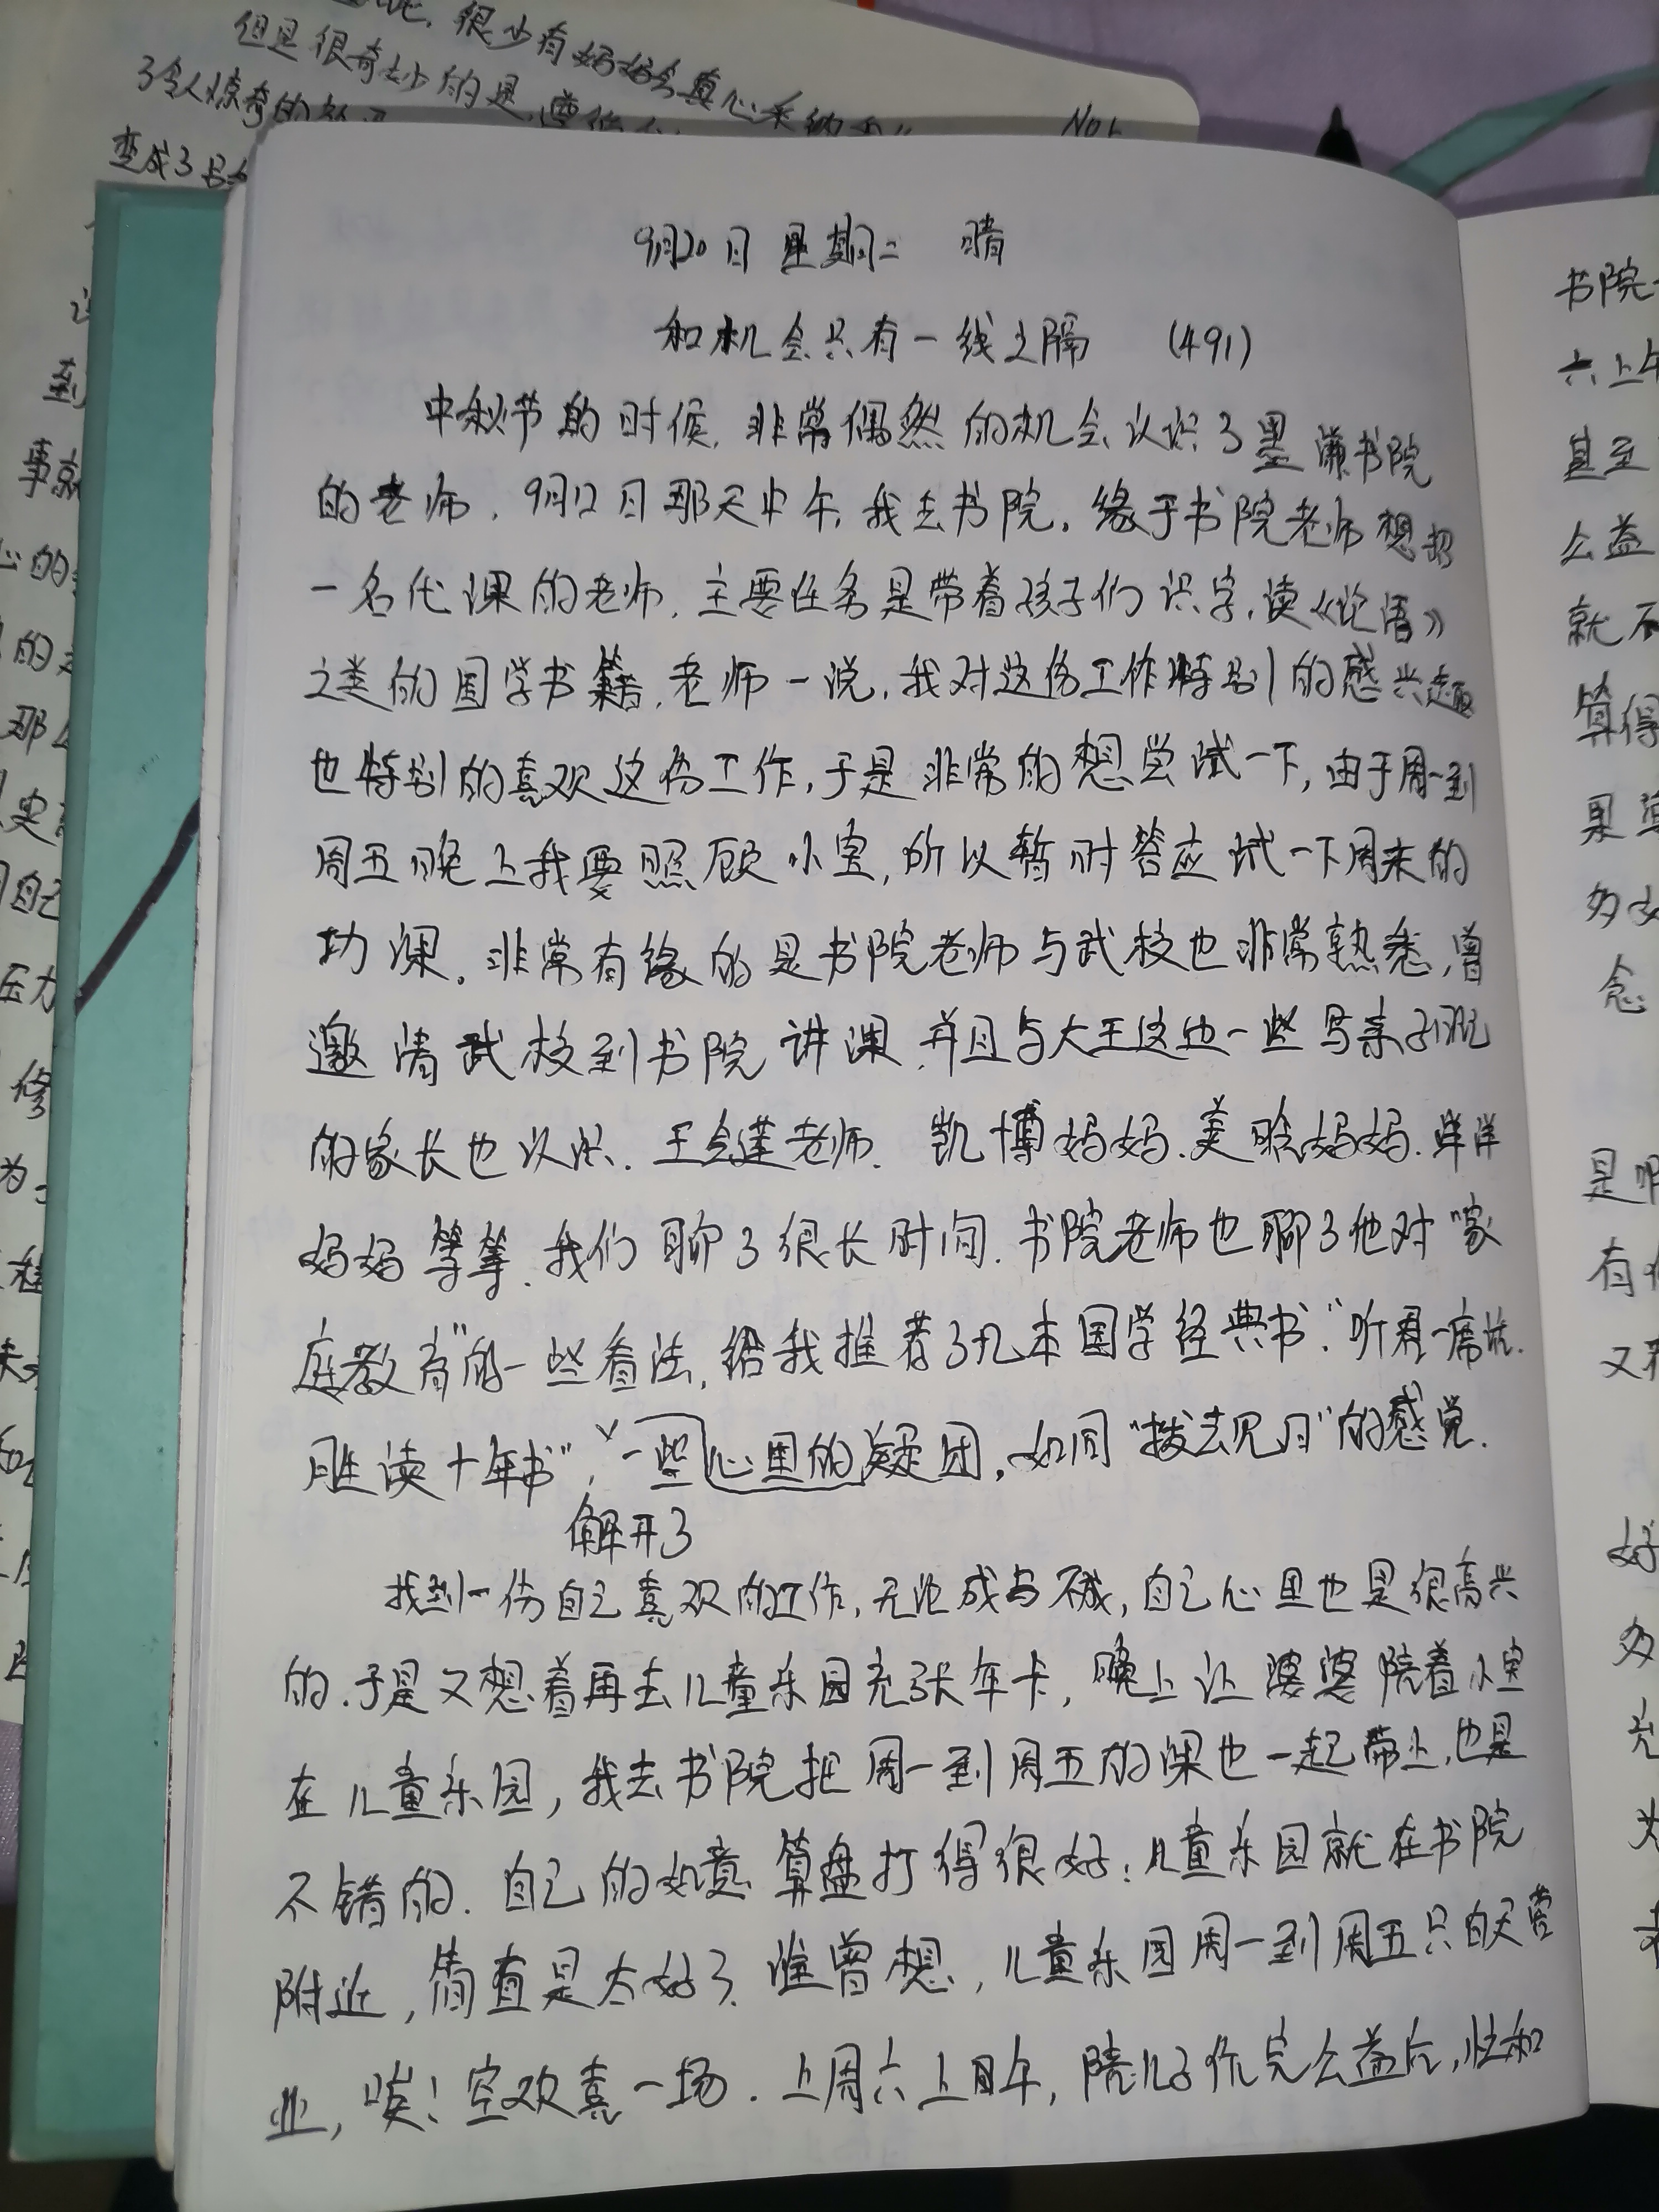 但是很奇妙的是
了令人惊奇的
变成了
9月20日 星期二 晴
和机会只有一线之隔 (491)
中秋节的时候,非常偶然的机会认识了墨谦书院
的老师.9月12日那天中午,我去书院.缘于书院老师想招
一名代课的老师.主要任务是带着孩子们识字,读《论语》
之类的国学书籍.老师一说,我对这份工作特别的感兴趣
也特别的喜欢这份工作,于是非常的想尝试一下,由于周一到
周五晚上我要照顾小宝,所以暂时答应试一下周末的
功课.非常有缘的是书院老师与武校也非常熟悉,曾
邀请武校到书院讲课.并且与大王这边一些写亲子日记
的家长也认识.王会莲老师.凯博妈妈.美晗妈妈.洋洋
妈妈等等.我们聊了很长时间.书院老师也聊了他对“家
庭教育”的一些看法,给我推荐了几本国学经典书.“听君一席话.
胜读十年书”,一些心里的疑团,如同“拨去见日”的感觉.
解开了
找到一份自己喜欢的工作,无论成与不成,自己心里也是很高兴
的.于是又想着再去儿童乐园充张年卡,晚上让婆婆陪着小宝
在儿童乐园,我去书院把周一到周五的课也一起带上,也是
不错的.自己的如意算盘打得很好:儿童乐园就在书院
附近,简直是太好了.谁曾想,儿童乐园周一到周五只白天营
业,唉!空欢喜一场.上周六上午,陪儿子作完公益后,忙和
书院
六上午
甚至
公益
就不
算得
果
多
念
有
又
好
多
充